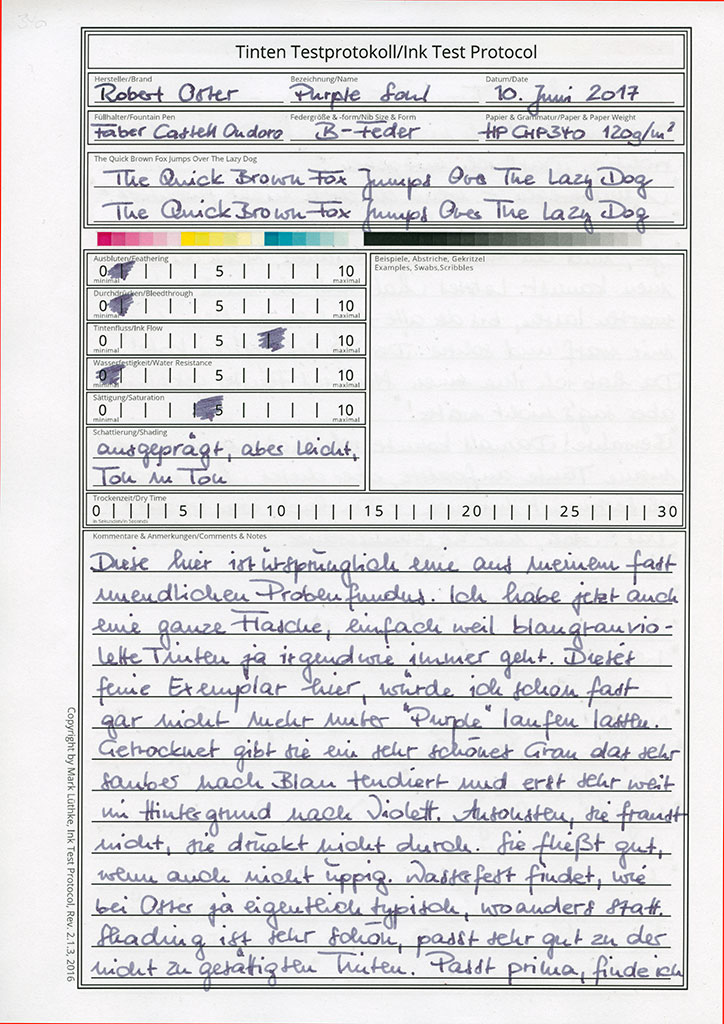 36
Tinten Testprotokoll/Ink Test Protocol
Hersteller/Brand Bezeichnung/Name Datum/Date
Robert Oster Purple Soul 10. Juni 2017
Füllhalter/Fountain Pen Federgröße & -form/Nib Size & Form Papier & Grammatur/Paper & Paper Weight
Faber Castell Ondoro B-Feder HP CHP340 120g/m²
The Quick Brown Fox Jumps Over The Lazy Dog
The Quick Brown Fox Jumps Over The Lazy Dog
The Quick Brown Fox Jumps Over The Lazy Dog
Ausbluten/Feathering
0 | | | | 5 | | | | 10
minimal maximal
Durchdrücken/Bleedthrough
0 | | | | 5 | | | | 10
minimal maximal
Tintenfluss/Ink Flow
0 | | | | 5 | | | | 10
minimal maximal
Wasserfestigkeit/Water Resistance
0 | | | | 5 | | | | 10
minimal maximal
Sättigung/Saturation
0 | | | | 5 | | | | 10
minimal maximal
Schattierung/Shading
ausgeprägt, aber leicht,
Ton in Ton
Beispiele, Abstriche, Gekritzel
Examples, Swabs,Scribbles
Trockenzeit/Dry Time
0 | | | | 5 | | | | 10 | | | | 15 | | | | 20 | | | | 25 | | | | 30
in Sekunden/in Seconds
Kommentare & Anmerkungen/Comments & Notes
Diese hier ist ursprünglich eine aus meinem fast
unendlichen Probenfundus. Ich habe jetzt auch
eine ganze Flasche, einfach weil blaugrauvio-
lette Tinten ja irgendwie immer geht. Dieses
feine Exemplar hier, würde ich schon fast
gar nicht mehr unter "Purple" laufen lassen.
Getrocknet gibt sie ein sehr schönes Grau das sehr
sauber nach Blau tendiert und erst sehr weit
im Hintergrund nach Violett. Ansonsten, sie franst
nicht, sie drückt nicht durch. Sie fließt gut,
wenn auch nicht üppig. Wasserfest findet, wie
bei Oster ja eigentlich typisch, woanders statt.
Shading ist sehr schön, passt sehr gut zu der
nicht zu gesättigten Tinten. Passt prima, finde ich
Copyright by Mark Lüthke, Ink Test Protocol, Rev. 2.1.3, 2016